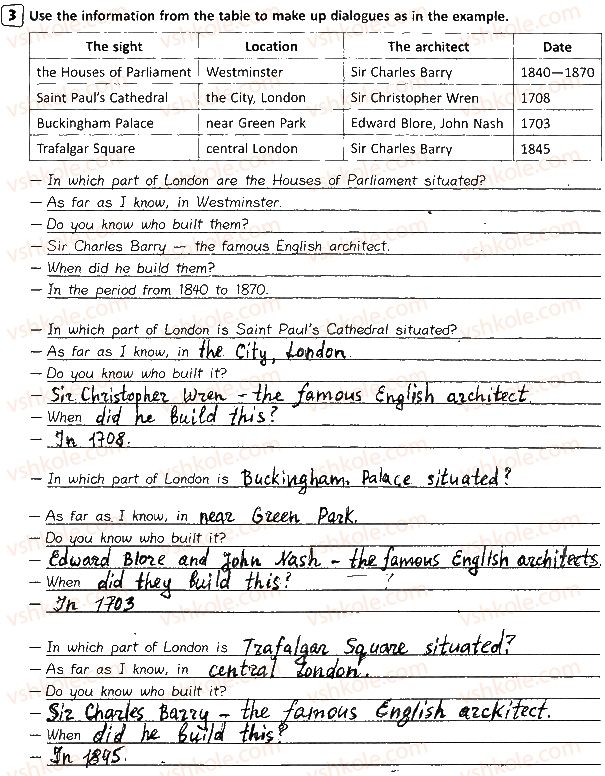 3 Use the information from the table to make up dialogues as in the example.
The sight Location The architect Date
the Houses of Parliament Westminster Sir Charles Barry 1840—1870
Saint Paul's Cathedral the City, London Sir Christopher Wren 1708
Buckingham Palace near Green Park Edward Blore, John Nash 1703
Trafalgar Square central London Sir Charles Barry 1845
— In which part of London are the Houses of Parliament situated?
— As far as I know, in Westminster.
— Do you know who built them?
— Sir Charles Barry — the famous English architect.
— When did he build them?
— In the period from 1840 to 1870.
— In which part of London is Saint Paul's Cathedral situated?
— As far as I know, in the City, London.
— Do you know who built it?
— Sir Christopher Wren - the famous English architect
— When did he build this?
— In 1708.
— In which part of London is Buckingham, Palace situated?
— As far as I know, in near Green Park.
— Do you know who built it?
— Edward Blore and John Nash - the famous English architects.
— When did they build this? ?
— In 1703
— In which part of London is Trafalgar Square situated?
— As far as I know, in central London.
— Do you know who built it?
— Sir Charles Barry - the famous English arckitect.
— When did he build this?
— In 1845.
vshkole.com